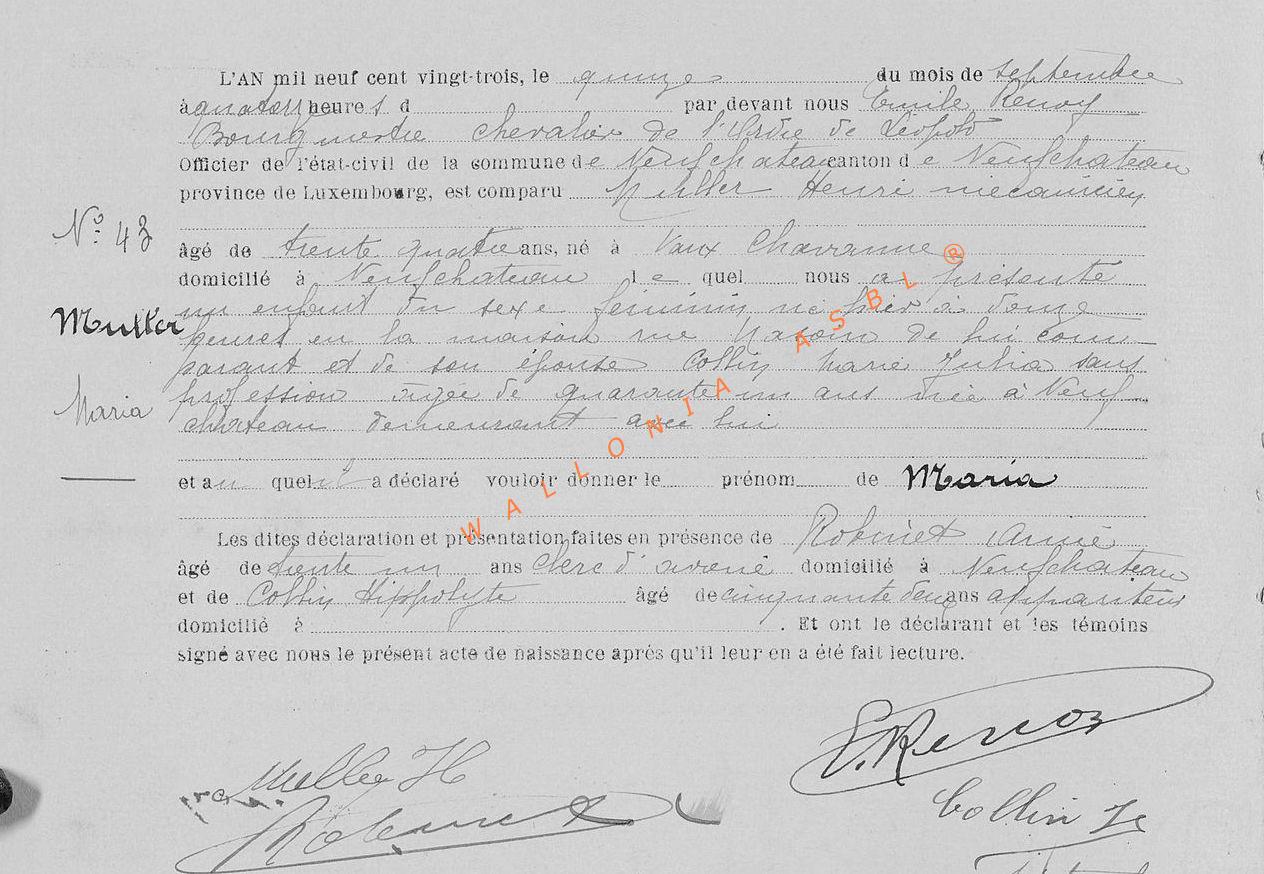 L'AN mil neuf cent vingt-trois, le quinze du mois de septembre
à quatorze heures d par devant nous Emile Renoy
Bourgmestre Chevalier de l'Ordre de Léopold
Officier de l'état-civil de la commune de Neufchateau canton de Neufchateau
province de Luxembourg, est comparu Muller Henri mécanicien
N° 43
âgé de trente quatre ans, né à Vaux Chavanne
domicilié à Neufchateau le quel nous a présenté
Muller
un enfant du sexe féminin né hier à douze
heures en la maison rue de lui com-
parant et de son épouse Collin Marie Julia sans
Maria
profession âgée de quarante un ans née à Neuf
château demeurant avec lui
et au quel il a déclaré vouloir donner le prénom de Maria
Les dites déclaration et présentation faites en présence de Robinet
âgé de trente un ans clerc d'avoué domicilié à Neufchateau
et de Collin Hippolyte âgé de cinquante deux ans appariteur
domicilié à . Et ont le déclarant et les témoins
signé avec nous le présent acte de naissance après qu'il leur en a été fait lecture.
E. Renoy
Muller H
Collin H
Robinet
WALLONIA ASBL ®